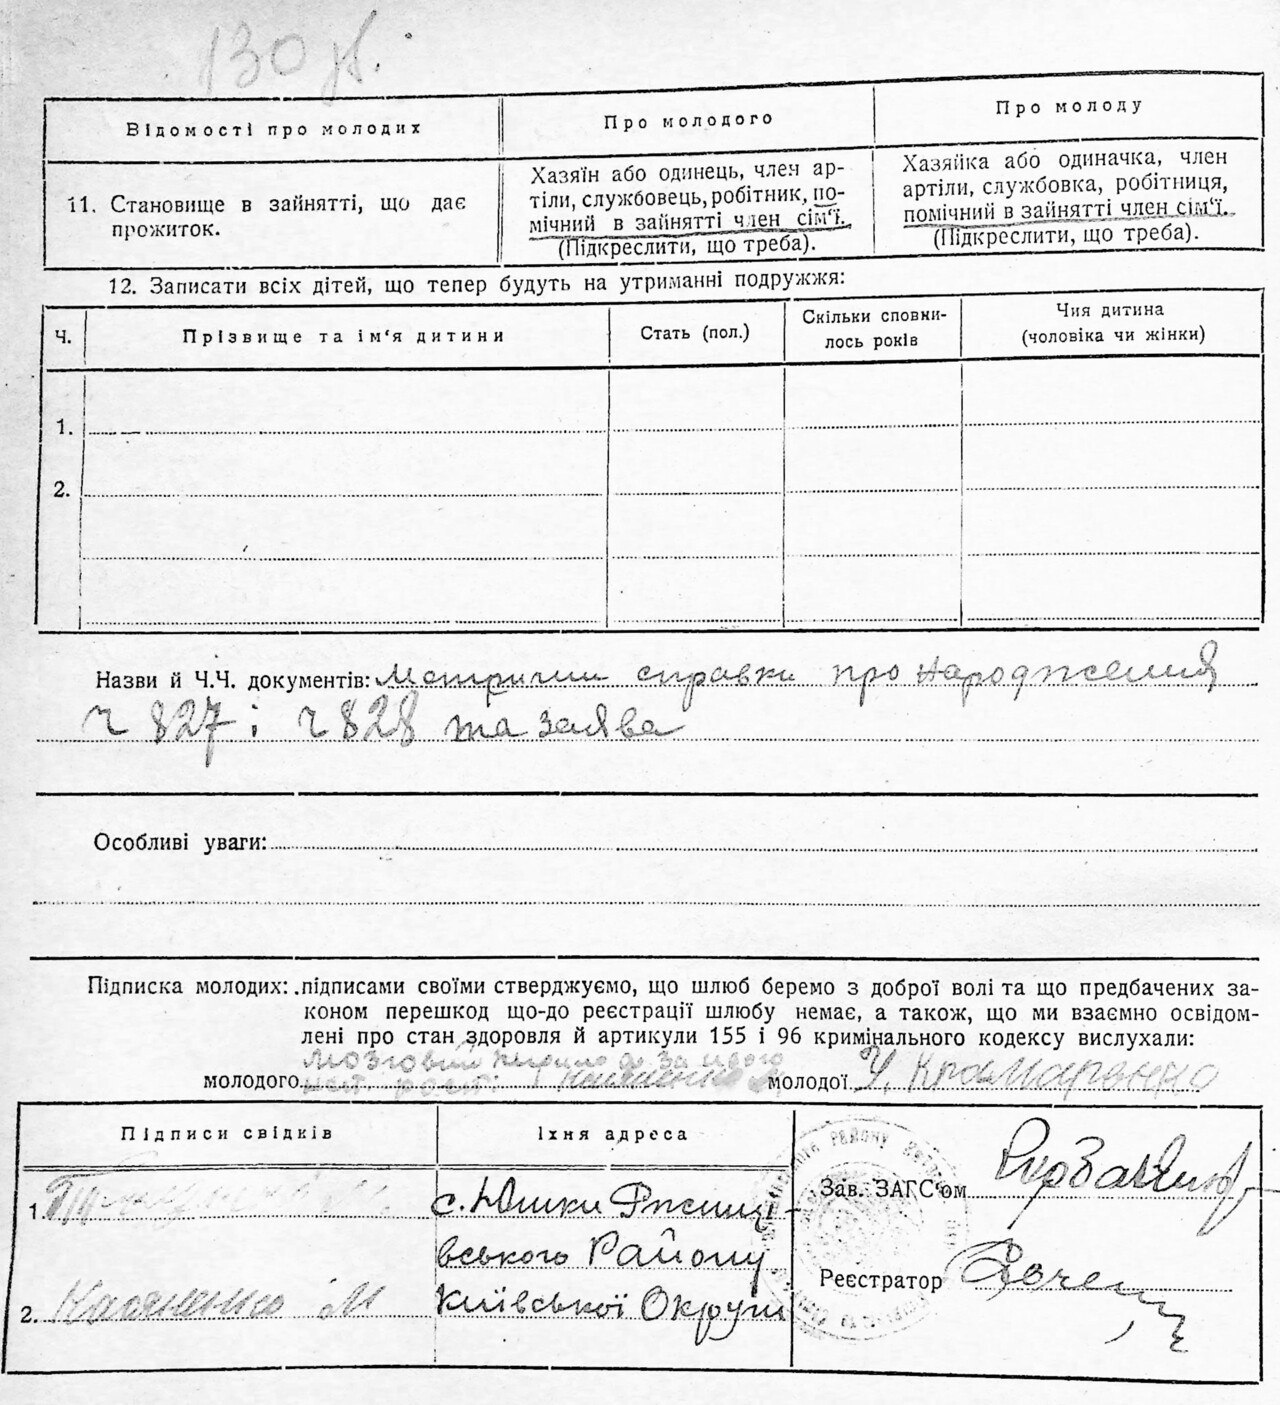 130
Відомості про молодих
Про молодого
Про молоду
11. Становище в зайнятті, що дає
прожиток.
Хазяїн або одинець, член ар-
тіли, службовець, робітник, по-
мічний в зайнятті член сім'ї.
(Підкреслити, що треба).
Хазяйка або одиначка, член
артіли, службовка, робітниця,
помічний в зайнятті член сім'ї.
(Підкреслити, що треба).
12. Записати всіх дітей, що тепер будуть на утриманні подружжя:
Ч.
Прізвище та ім'я дитини
Стать (пол.)
Скільки сповни-
лось років
Чия дитина
(чоловіка чи жінки)
1.
2.
Назви й Ч.Ч. документів: Метричні справки про народження
ч 827 і ч 828 та заява
Особливі уваги:
Підписка молодих: підписами своїми стверджуємо, що шлюб беремо з доброї волі та що предбачених за-
коном перешкод що-до реєстрації шлюбу немає, а також, що ми взаємно освідом-
лені про стан здоровля й артикули 155 і 96 кримінального кодексу вислухали:
молодого
молодої У. Крамаренко
Підписи свідків
Їхня адреса
1.
с. Юшки Ржищі-
вського Району
2.
Київської Округи
Зав. ЗАГС'ом
Реєстратор